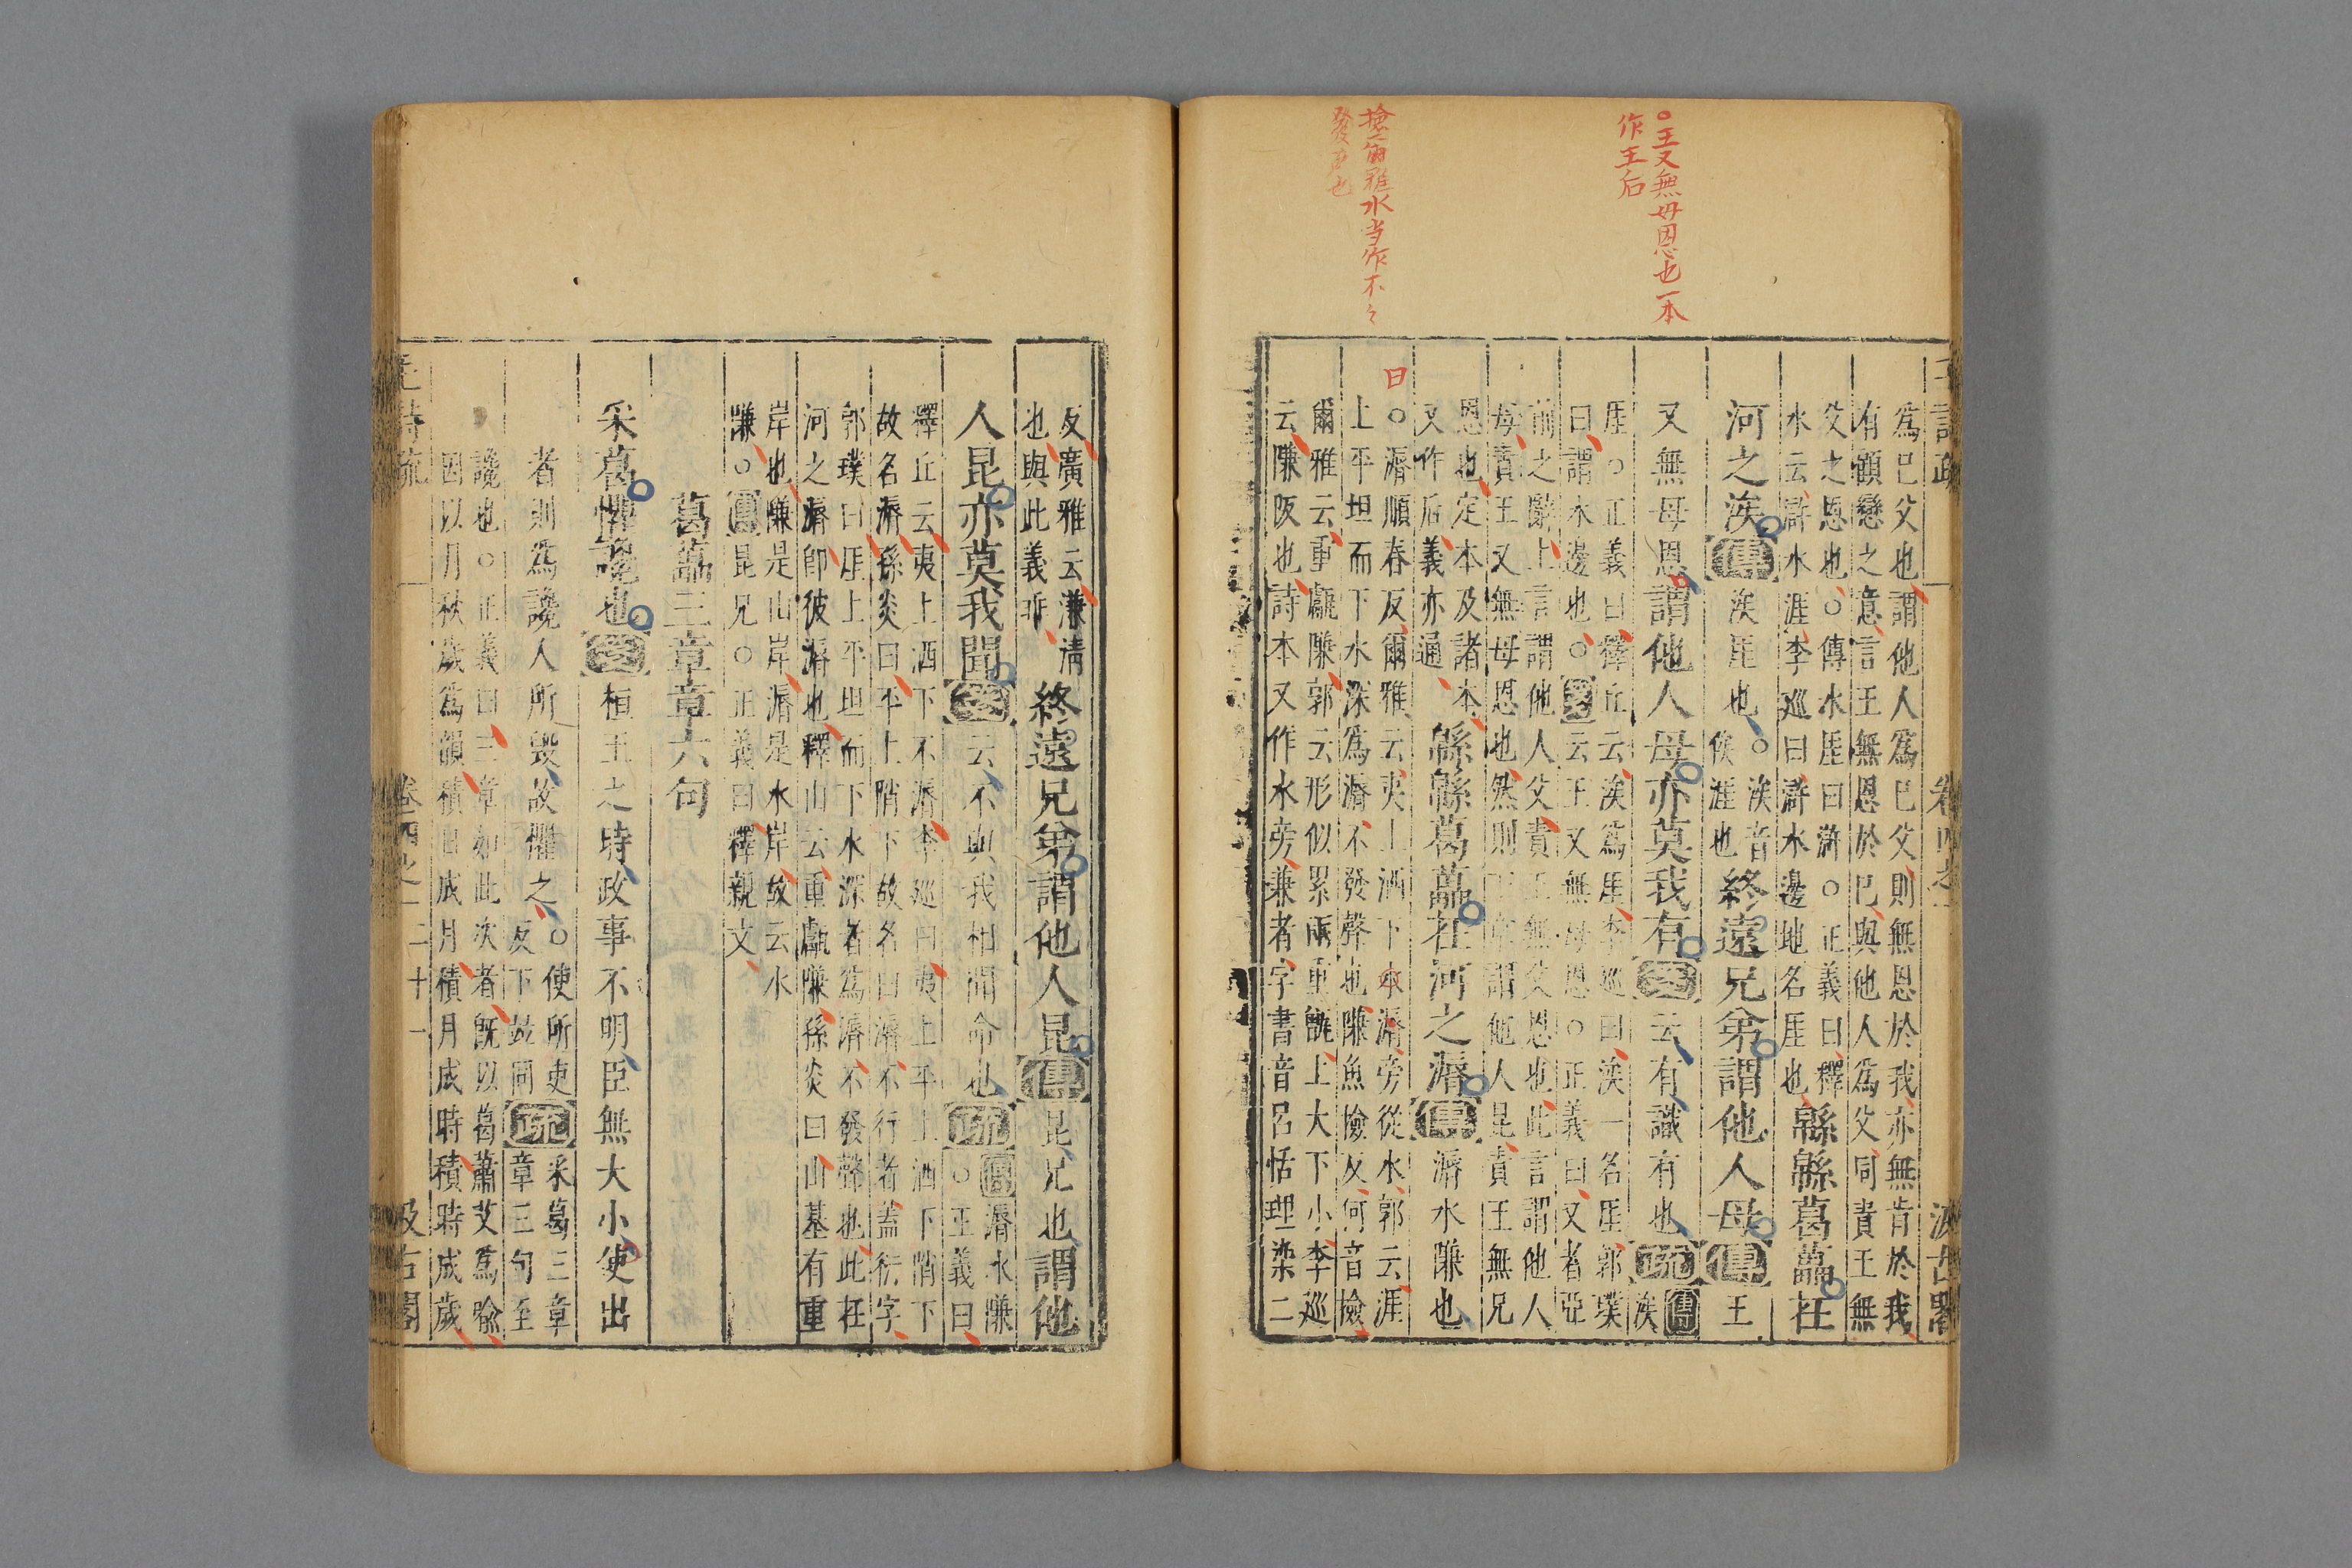 ○王又無母恩也一本
作王后
爾雅水当作不々
發声也
日
毛詩疏 卷四之一 汲古閣
爲已父也謂他人爲已父則無恩於我亦無肯於我
有顧戀之意言王無恩於已與他人爲父同責王無
父之恩也○傳水厓曰滸○正義曰釋
水云滸水涯李巡曰滸水邊地名厓也
緜緜葛藟在
河之涘傳涘厓也○涘音俟涯也終遠兄弟謂他人母傳王
又無母恩謂他人母亦莫我有箋云有識有也疏傳涘
厓○正義曰釋丘云涘爲厓李巡曰涘一名厓郭璞
曰謂水邊也○箋云王又無母恩○正義曰又者亞
前之辭上言謂他人父責王無父恩也此言謂他人
母責王又無母恩也然則下章謂他人昆責王無兄
恩也定本及諸本
又作后義亦通
緜緜葛藟在河之漘傳漘水隒也
○漘順春反爾雅云夷上洒下水漘旁從水郭云涯
上平坦而下水深爲漘不發聲也隒魚檢反何音檢
爾雅云重甗隒郭云形似累兩重甑上大下小李巡
云隒阪也詩本又作水旁兼者字書音呂恬理染二
反廣雅云溓清
也與此義乖
終遠兄弟謂他人昆傳昆兄也謂他
人昆亦莫我聞箋云不與我相聞命也疏傳漘水隒○正義曰
釋丘云夷上洒下不漘李巡曰夷上平上洒下陗下
故名漘孫炎曰平上陗下故名曰漘不行者蓋衍字
郭璞曰厓上平坦而下水深者爲漘不發聲也此在
河之漘卽彼漘也釋山云重甗隒孫炎曰山基有重
岸也隒是山岸漘是水岸故云水
隒○傳昆兄○正義曰釋親文
葛藟三章章六句
采葛懼讒也箋桓王之時政事不明臣無大小使出
者則爲讒人所毀故懼之○使所吏反下竝同疏采葛三章章三句至
讒也○正義曰三章如此次者旣以葛蕭艾爲喻
因以月秋歲爲韻積日成月積月成時積時成歲
毛詩疏 卷四之一 二十一 汲古閣